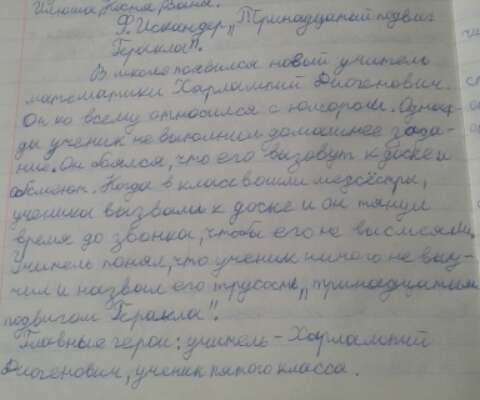 Илюша, Катя, Ваня.
Ф. Искандер „Тринадцатый подвиг
Геракла".
В школе появился новый учитель
математики Харлампий Диогенович.
Он ко всему относился с юмором. Однаж-
ды ученик не выполнил домашнее зада-
ние. Он боялся, что его вызовут к доске и
обсмеют. Когда в класс вошли медсёстры,
ученика вызвали к доске и он тянул
время до звонка, чтобы его не высмеяли.
Учитель понял, что ученик ничего не выу-
чил и назвал его трусость „тринадцатым
подвигом Геракла".
Главные герои: учитель - Харлампий
Диогенович, ученик пятого класса.